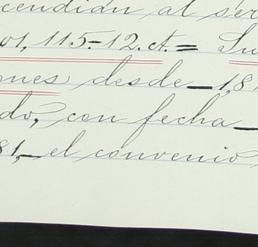 cendian al ser
01,115-12.ct. = Su
nes desde_1,8
do, con fecha_
81,_el convenio